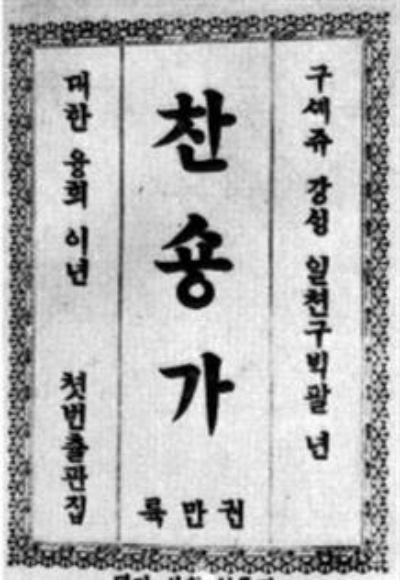 구셰쥬 강싱 일쳔구빅팔 년
찬숑가
륙만권
대한 융희 이년 첫번출판집